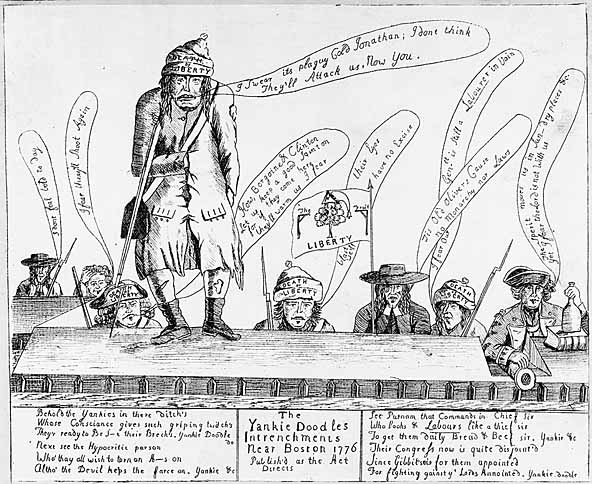 I Swear its plaguy Cold Jonathan; I dont think
They'll Attack us, Now You.
DEATH
or
LIBERTY
I dont feel bold to day
I fear they'll Shoot Again
How Borgoine & Clinton
let keep a good
if they come here
They'll warm us I fear
their Eyes
have no Excise
The Tree
LIBERTY
Gen.ll is still a Labourer in Vain
Tis Old Olivers Cause
No Monarchy nor Laws
Spirit moves us in Sundry places &c
I fear the Lord is not with us
DEATH
or
LIBERTY
DEATH
or
LIBERTY
DEATH
or
LIBERTY
Behold the Yankies in there ditch's
Whose Conscience gives such griping twitch's
They'r ready to Be S-t their Brech's. Yankie Doodle do
Next see the Hypocritic parson
Who thay all wish to turn an A—s on
Altho' the Devil keeps the farce on. Yankie &c
The
Yankie Doodles
Intrenchments
Near Boston 1776
Publish'd as the Act
Directs
See Putnam that Commands in Chief Sir
Who looks & Labours like a thief sir
To get them daily Bread & Beef sir. Yankie &c
Their Congress now is quite disjoint'd
Since Gibbits is for them appointed
For fighting gainst ye Lords Annointed. Yankie doodle